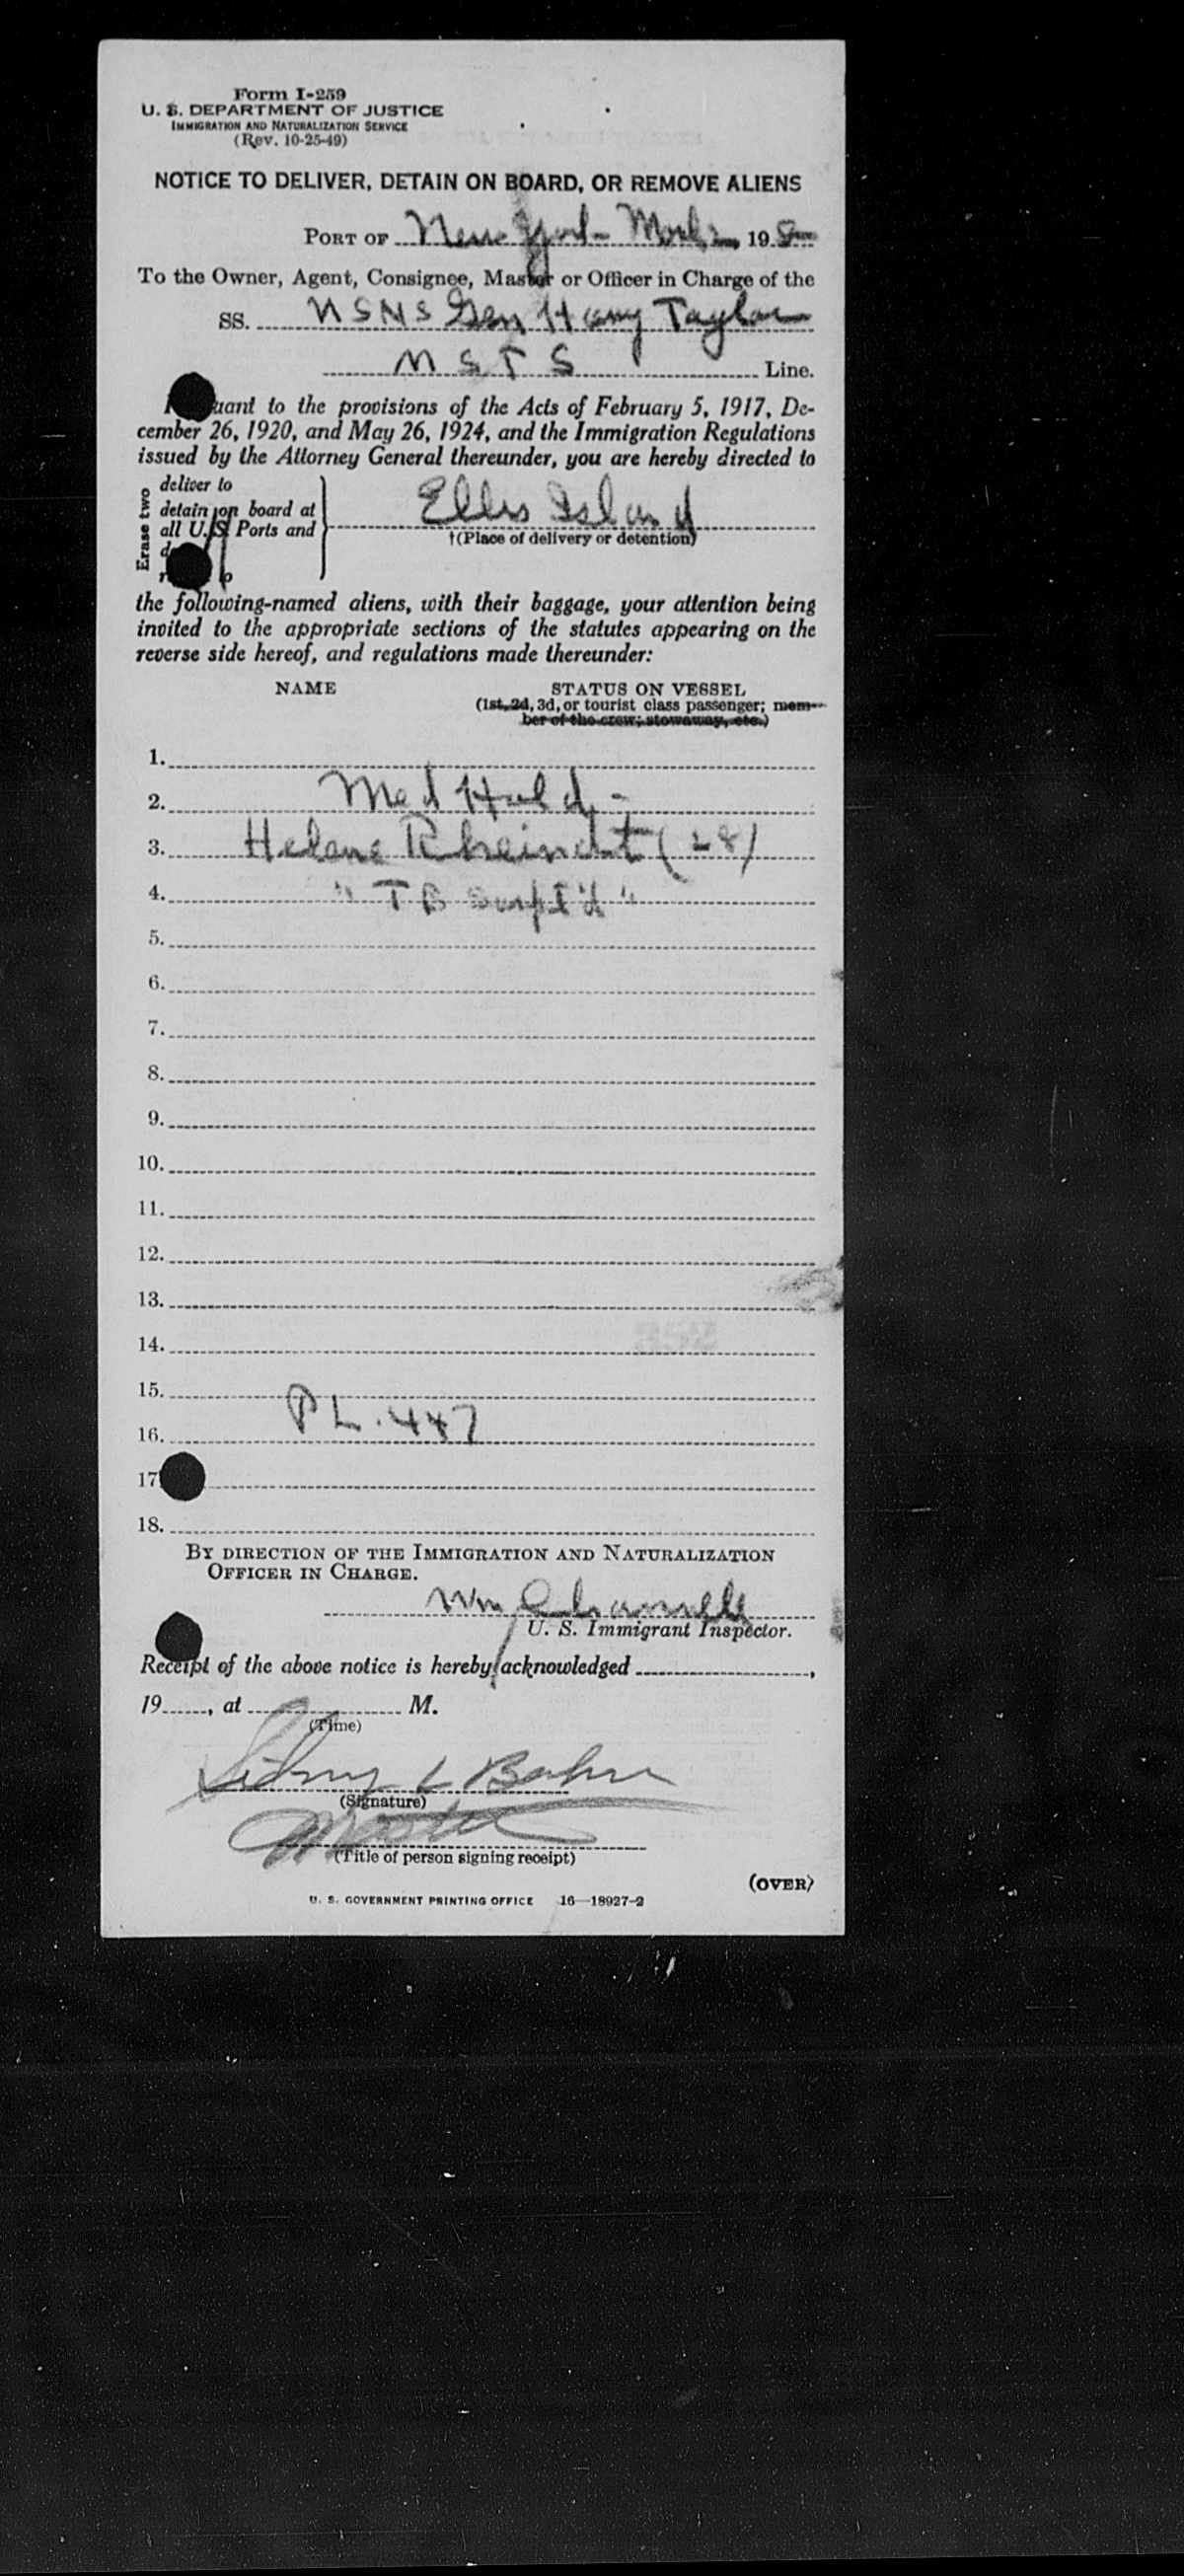 Form I-259
U. S. DEPARTMENT OF JUSTICE
IMMIGRATION AND NATURALIZATION SERVICE
(Rev. 10-25-49)
NOTICE TO DELIVER, DETAIN ON BOARD, OR REMOVE ALIENS
PORT OF New York 19
To the Owner, Agent, Consignee, Master or Officer in Charge of the
SS. USNS Gen Harry Taylor
M S T S Line.
to the provisions of the Acts of February 5, 1917, De-
cember 26, 1920, and May 26, 1924, and the Immigration Regulations
issued by the Attorney General thereunder, you are hereby directed to
Erase two
deliver to
detain on board at
all U. S. Ports and
Ellis Island
†(Place of delivery or detention)
the following-named aliens, with their baggage, your attention being
invited to the appropriate sections of the statutes appearing on the
reverse side hereof, and regulations made thereunder:
NAME STATUS ON VESSEL
(1st, 2d, 3d, or tourist class passenger; mem-
ber of the crew; stowaway, etc.)
1.
2. Med Hold -
3. Helene (28)
4. " TB "
5.
6.
7.
8.
9.
10.
11.
12.
13.
14.
15.
16. PL. 447
17
18.
BY DIRECTION OF THE IMMIGRATION AND NATURALIZATION
OFFICER IN CHARGE.
Wm
U. S. Immigrant Inspector.
Receipt of the above notice is hereby acknowledged ,
19 , at M.
(Time)
Sidney L
(Signature)
Master
(Title of person signing receipt)
(OVER)
U. S. GOVERNMENT PRINTING OFFICE 16—18927-2